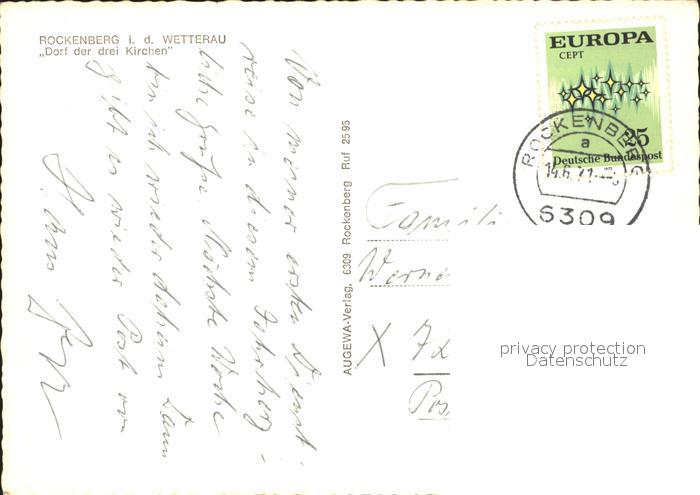 ROCKENBERG i. d. WETTERAU
„Dorf der drei Kirchen"
Von meiner ersten Dienst-
reise in diesem Jahr herz-
liche Grüße. Nächste Woche
bin ich wieder daheim. Dann
gibt es wieder Post von
AUGEWA-Verlag, 6309 Rockenberg Ruf 25 95
EUROPA
CEPT
25
Deutsche Bundespost
ROCKENBERG
a
14.6.
6309
Famili
Werne
X 72
Pos
privacy protection
Datenschutz